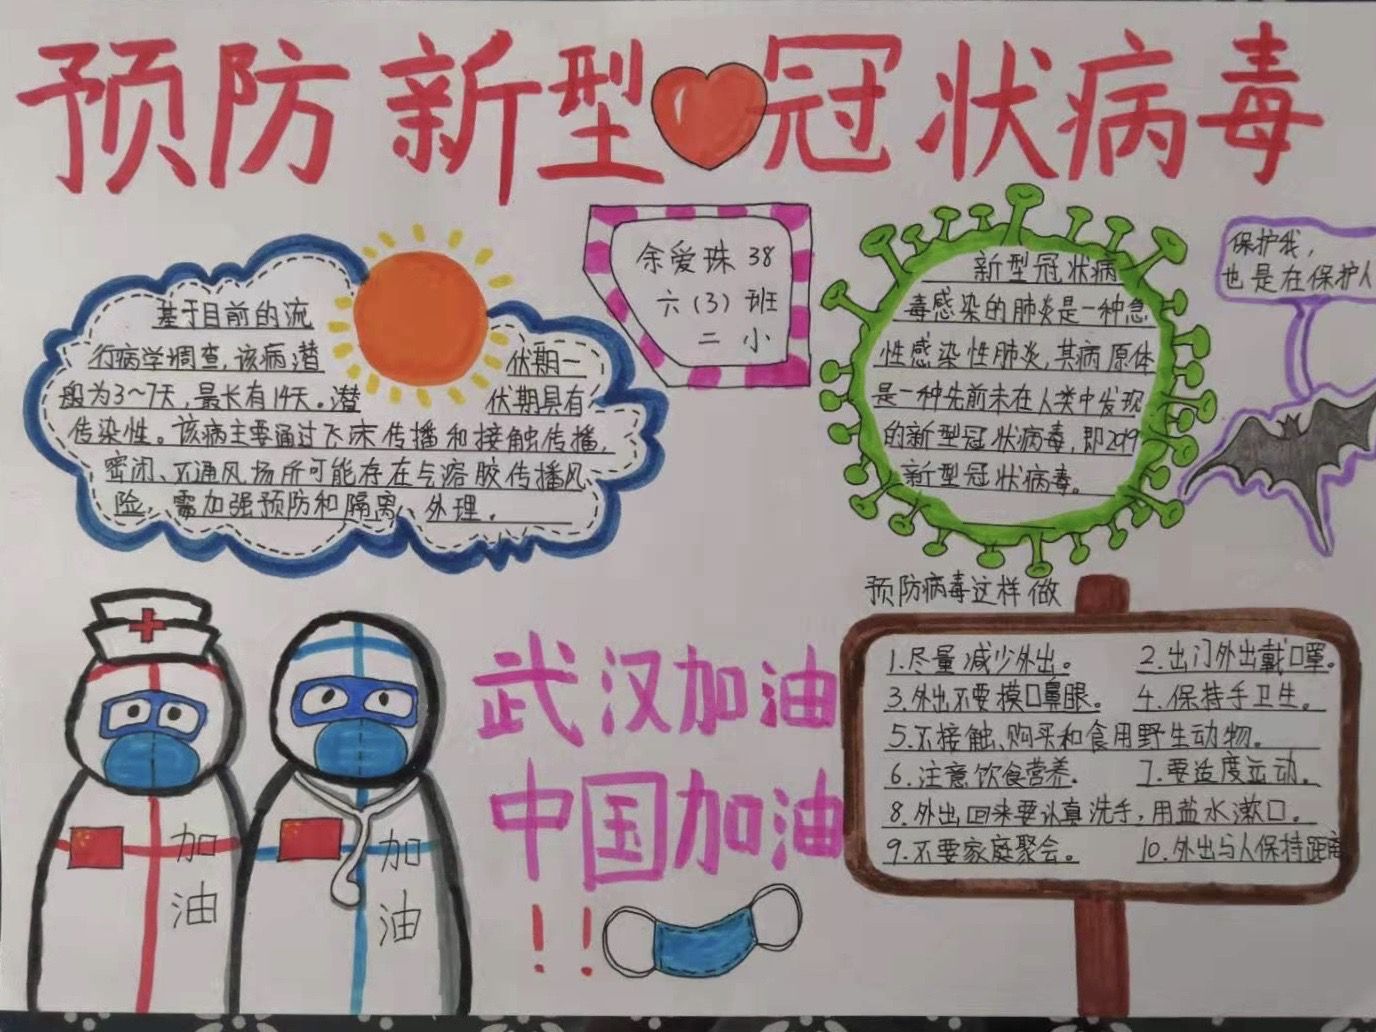 预防新型冠状病毒
基于目前的流
行病学调查,该病潜伏期一
般为3~7天,最长有14天。潜伏期具有
传染性。该病主要通过飞沫传播和接触传播,
密闭、不通风场所可能存在与溶胶传播风
险,需加强预防和隔离、处理。
余爱珠 38
六(3)班
二小
新型冠状病
毒感染的肺炎是一种急
性感染性肺炎,其病原体
是一种先前未在人类中发现
的新型冠状病毒,即2019
新型冠状病毒。
保护我,
也是在保护人
加
油
加
油
武汉加油
中国加油
!!
预防病毒这样做
1.尽量减少外出。 2.出门外出戴口罩。
3.外出不要摸口鼻眼。 4.保持手卫生。
5.不接触、购买和食用野生动物。
6.注意饮食营养. 7.要适度运动.
8.外出回来要认真洗手,用盐水漱口。
9.不要家庭聚会。 10.外出与人保持距离